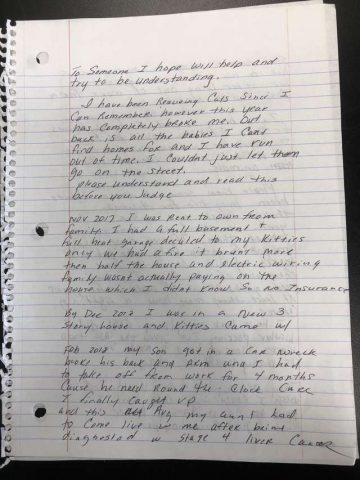 To Someone I hope will help and
try to be understanding.
I have been Rescuing Cats Since I
Can Remember however this year
has Completely broke me. Out
back is all the babies I Cant
find homes for and I have run
out of time. I Couldnt just let them
go on the street.
please understand and read this
before you Judge
Nov 2017 I was Rent to own from
family. I had a full basement &
full heat garage decated to my Kitties
only we had a fire it brunt more
then half the house and electric wiring
family wasnt actually paying on the
house which I didnt know So No Insurance
By Dec 2017 I was in a New 3
Story house and Kitties Came w/
Feb 2018 my Son got in a Car wreck
broke his back and Arm and I had
to take off from work for 4 months
Cause he need Round the Clock Care
I finally Caught up
and this Aug my aunt had
to Come live w me after being
diagnosted w Stage 4 liver Cancer